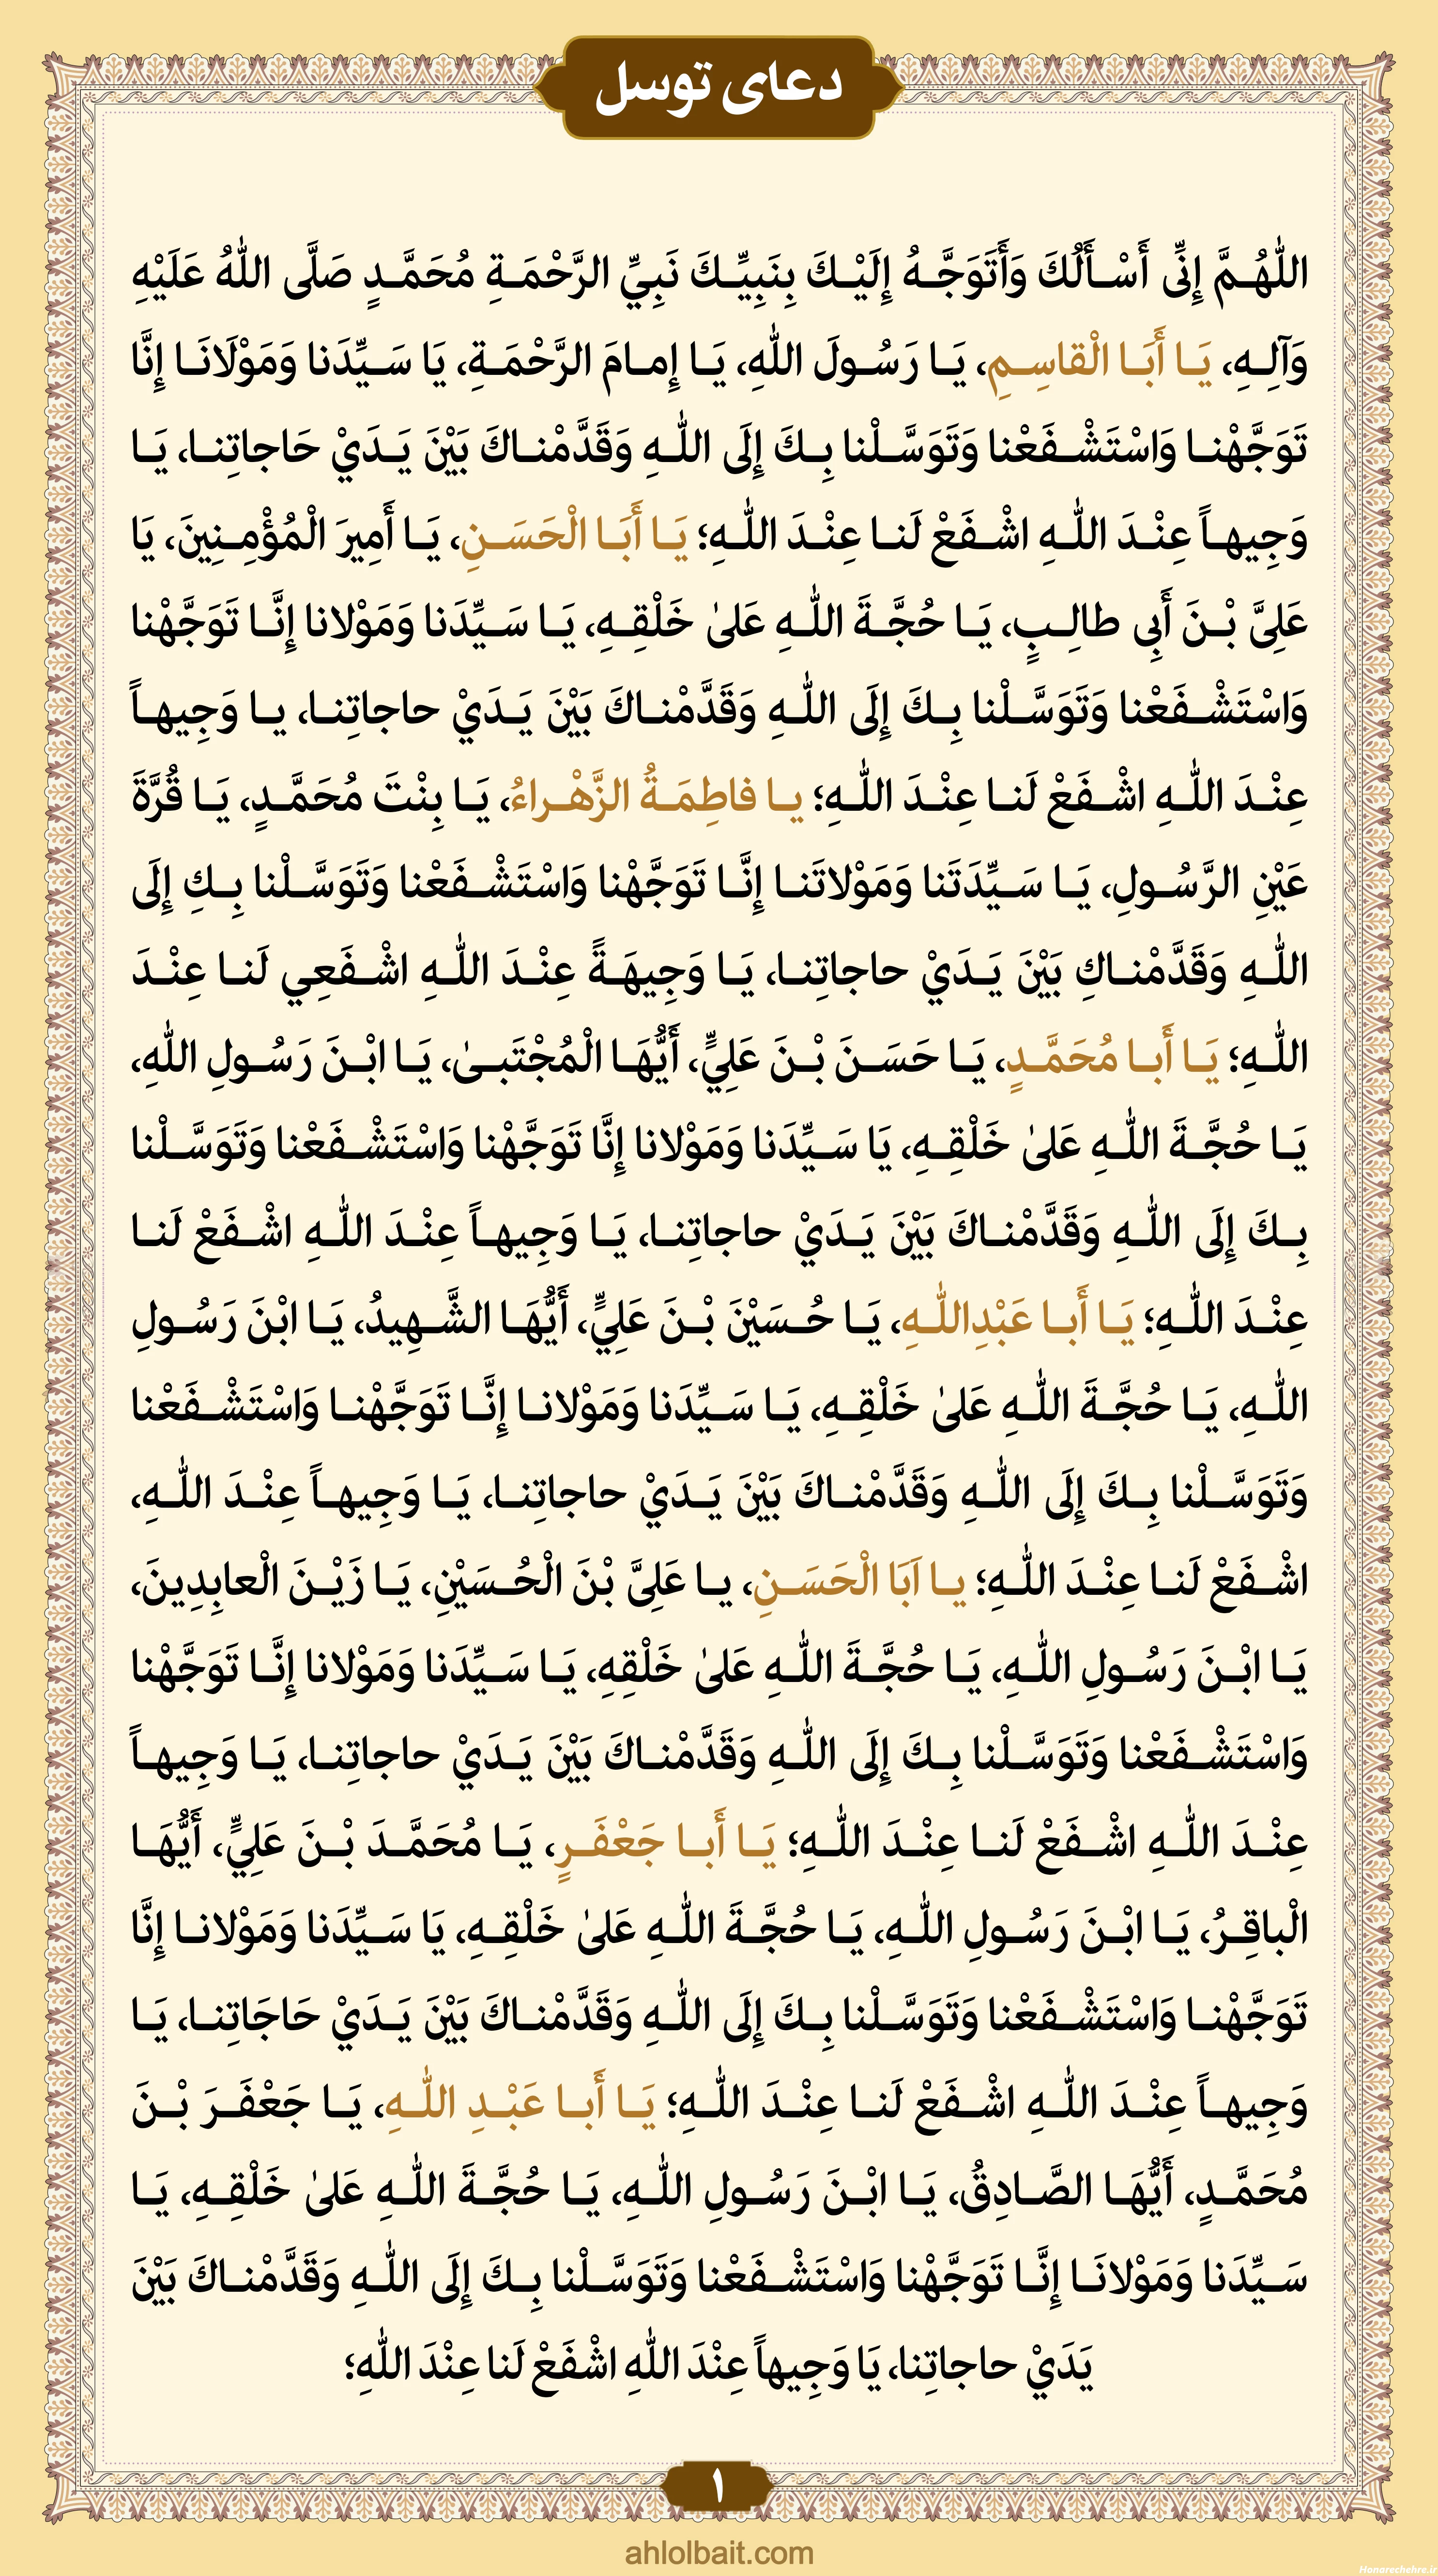 دعای توسل
اللّٰهُمَّ إِنِّی أَسْأَلُكَ وَأَتَوَجَّهُ إِلَیْكَ بِنَبِیِّكَ نَبِيِّ الرَّحْمَةِ مُحَمَّدٍ صَلَّی اللّٰهُ عَلَیْهِ
وَآلِهِ، یَا أَبَا الْقاسِمِ، یَا رَسُولَ اللّٰهِ، یَا إِمامَ الرَّحْمَةِ، یَا سَیِّدَنا وَمَوْلَانَا إِنَّا
تَوَجَّهْنا وَاسْتَشْفَعْنا وَتَوَسَّلْنا بِكَ إِلَی اللّٰهِ وَقَدَّمْناكَ بَیْنَ یَدَيْ حَاجاتِنا، یَا
وَجِیهاً عِنْدَ اللّٰهِ اشْفَعْ لَنا عِنْدَ اللّٰهِ؛ یَا أَبَا الْحَسَنِ، یَا أَمِیرَ الْمُؤْمِنِینَ، یَا
عَلِیَّ بْنَ أَبِی طالِبٍ، یَا حُجَّةَ اللّٰهِ عَلیٰ خَلْقِهِ، یَا سَیِّدَنا وَمَوْلانا إِنَّا تَوَجَّهْنا
وَاسْتَشْفَعْنا وَتَوَسَّلْنا بِكَ إِلَی اللّٰهِ وَقَدَّمْناكَ بَیْنَ یَدَيْ حاجاتِنا، یا وَجِیهاً
عِنْدَ اللّٰهِ اشْفَعْ لَنا عِنْدَ اللّٰهِ؛ یا فاطِمَةُ الزَّهْراءُ، یَا بِنْتَ مُحَمَّدٍ، یَا قُرَّةَ
عَیْنِ الرَّسُولِ، یَا سَیِّدَتَنا وَمَوْلاتَنا إِنَّا تَوَجَّهْنا وَاسْتَشْفَعْنا وَتَوَسَّلْنا بِكِ إِلَی
اللّٰهِ وَقَدَّمْناكِ بَیْنَ یَدَيْ حاجاتِنا، یَا وَجِیهَةً عِنْدَ اللّٰهِ اشْفَعِي لَنا عِنْدَ
اللّٰهِ؛ یَا أَبا مُحَمَّدٍ، یَا حَسَنَ بْنَ عَلِيٍّ، أَیُّهَا الْمُجْتَبیٰ، یَا ابْنَ رَسُولِ اللّٰهِ،
یَا حُجَّةَ اللّٰهِ عَلیٰ خَلْقِهِ، یَا سَیِّدَنا وَمَوْلانا إِنَّا تَوَجَّهْنا وَاسْتَشْفَعْنا وَتَوَسَّلْنا
بِكَ إِلَی اللّٰهِ وَقَدَّمْناكَ بَیْنَ یَدَيْ حاجاتِنا، یَا وَجِیهاً عِنْدَ اللّٰهِ اشْفَعْ لَنا
عِنْدَ اللّٰهِ؛ یَا أَبا عَبْدِاللّٰهِ، یَا حُسَیْنَ بْنَ عَلِيٍّ، أَیُّهَا الشَّهِیدُ، یَا ابْنَ رَسُولِ
اللّٰهِ، یَا حُجَّةَ اللّٰهِ عَلیٰ خَلْقِهِ، یَا سَیِّدَنا وَمَوْلانا إِنَّا تَوَجَّهْنا وَاسْتَشْفَعْنا
وَتَوَسَّلْنا بِكَ إِلَی اللّٰهِ وَقَدَّمْناكَ بَیْنَ یَدَيْ حاجاتِنا، یَا وَجِیهاً عِنْدَ اللّٰهِ،
اشْفَعْ لَنا عِنْدَ اللّٰهِ؛ یا اَبَا الْحَسَنِ، یا عَلِیَّ بْنَ الْحُسَیْنِ، یَا زَیْنَ الْعابِدِینَ،
یَا ابْنَ رَسُولِ اللّٰهِ، یَا حُجَّةَ اللّٰهِ عَلیٰ خَلْقِهِ، یَا سَیِّدَنا وَمَوْلانا إِنَّا تَوَجَّهْنا
وَاسْتَشْفَعْنا وَتَوَسَّلْنا بِكَ إِلَی اللّٰهِ وَقَدَّمْناكَ بَیْنَ یَدَيْ حاجاتِنا، یَا وَجِیهاً
عِنْدَ اللّٰهِ اشْفَعْ لَنا عِنْدَ اللّٰهِ؛ یَا أَبا جَعْفَرٍ، یَا مُحَمَّدَ بْنَ عَلِيٍّ، أَیُّهَا
الْباقِرُ، یَا ابْنَ رَسُولِ اللّٰهِ، یَا حُجَّةَ اللّٰهِ عَلیٰ خَلْقِهِ، یَا سَیِّدَنا وَمَوْلانا إِنَّا
تَوَجَّهْنا وَاسْتَشْفَعْنا وَتَوَسَّلْنا بِكَ إِلَی اللّٰهِ وَقَدَّمْناكَ بَیْنَ یَدَيْ حَاجَاتِنا، یَا
وَجِیهاً عِنْدَ اللّٰهِ اشْفَعْ لَنا عِنْدَ اللّٰهِ؛ یَا أَبا عَبْدِ اللّٰهِ، یَا جَعْفَرَ بْنَ
مُحَمَّدٍ، أَیُّهَا الصَّادِقُ، یَا ابْنَ رَسُولِ اللّٰهِ، یَا حُجَّةَ اللّٰهِ عَلیٰ خَلْقِهِ، یَا
سَیِّدَنا وَمَوْلانَا إِنَّا تَوَجَّهْنا وَاسْتَشْفَعْنا وَتَوَسَّلْنا بِكَ إِلَی اللّٰهِ وَقَدَّمْناكَ بَیْنَ
یَدَيْ حاجاتِنا، یَا وَجِیهاً عِنْدَ اللّٰهِ اشْفَعْ لَنا عِنْدَ اللّٰهِ؛
۱
ahlolbait.com
Honarechehre.ir